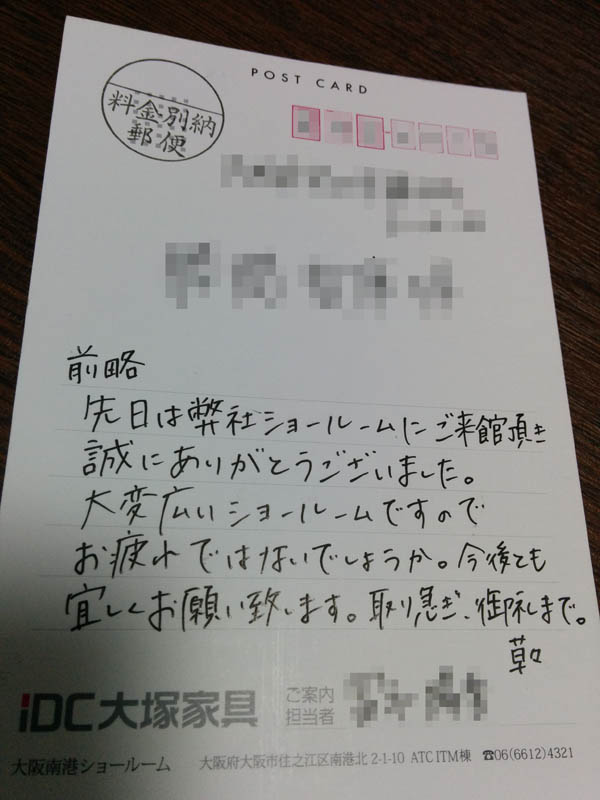 POST CARD
料金別納
郵便
前略
先日は弊社ショールームにご来館頂き
誠にありがとうございました。
大変広いショールームですので
お疲れではないでしょうか。今後とも
宜しくお願い致します。取り急ぎ、御礼まで。
草々
iDC大塚家具 ご案内
担当者
大阪南港ショールーム 大阪府大阪市住之江区南港北 2-1-10 ATC ITM棟 ☎06(6612)4321